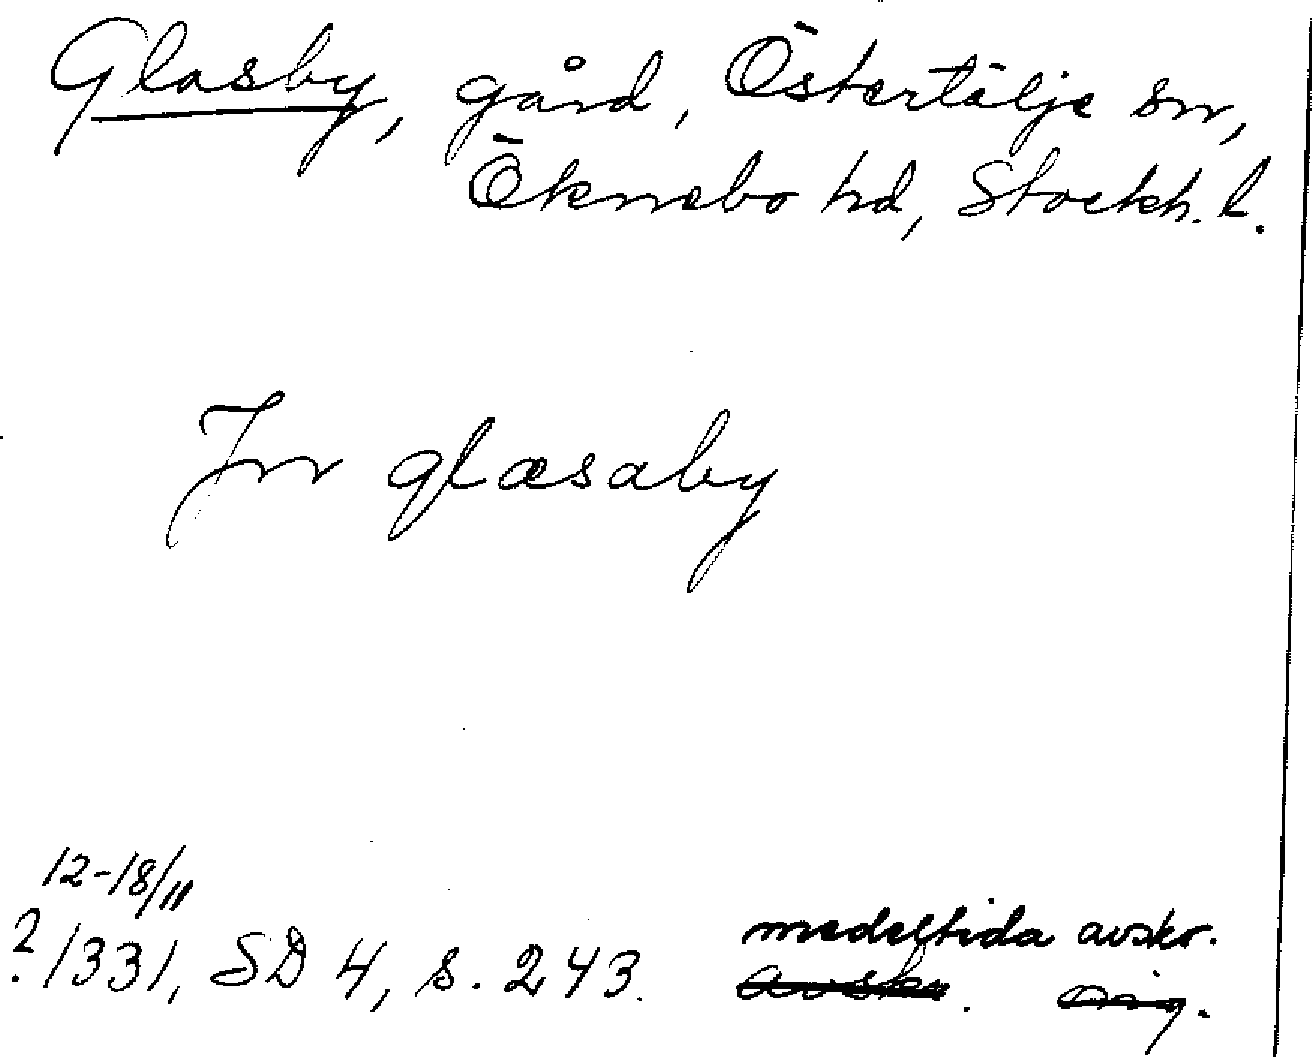 Glasby, gård, Östertälje sn,
Öknebo hd, Stockh. l.
Jn glæsaby
12-18/11
? 1331, SD 4, s. 243. medeltida avskr.
avskr. orig.